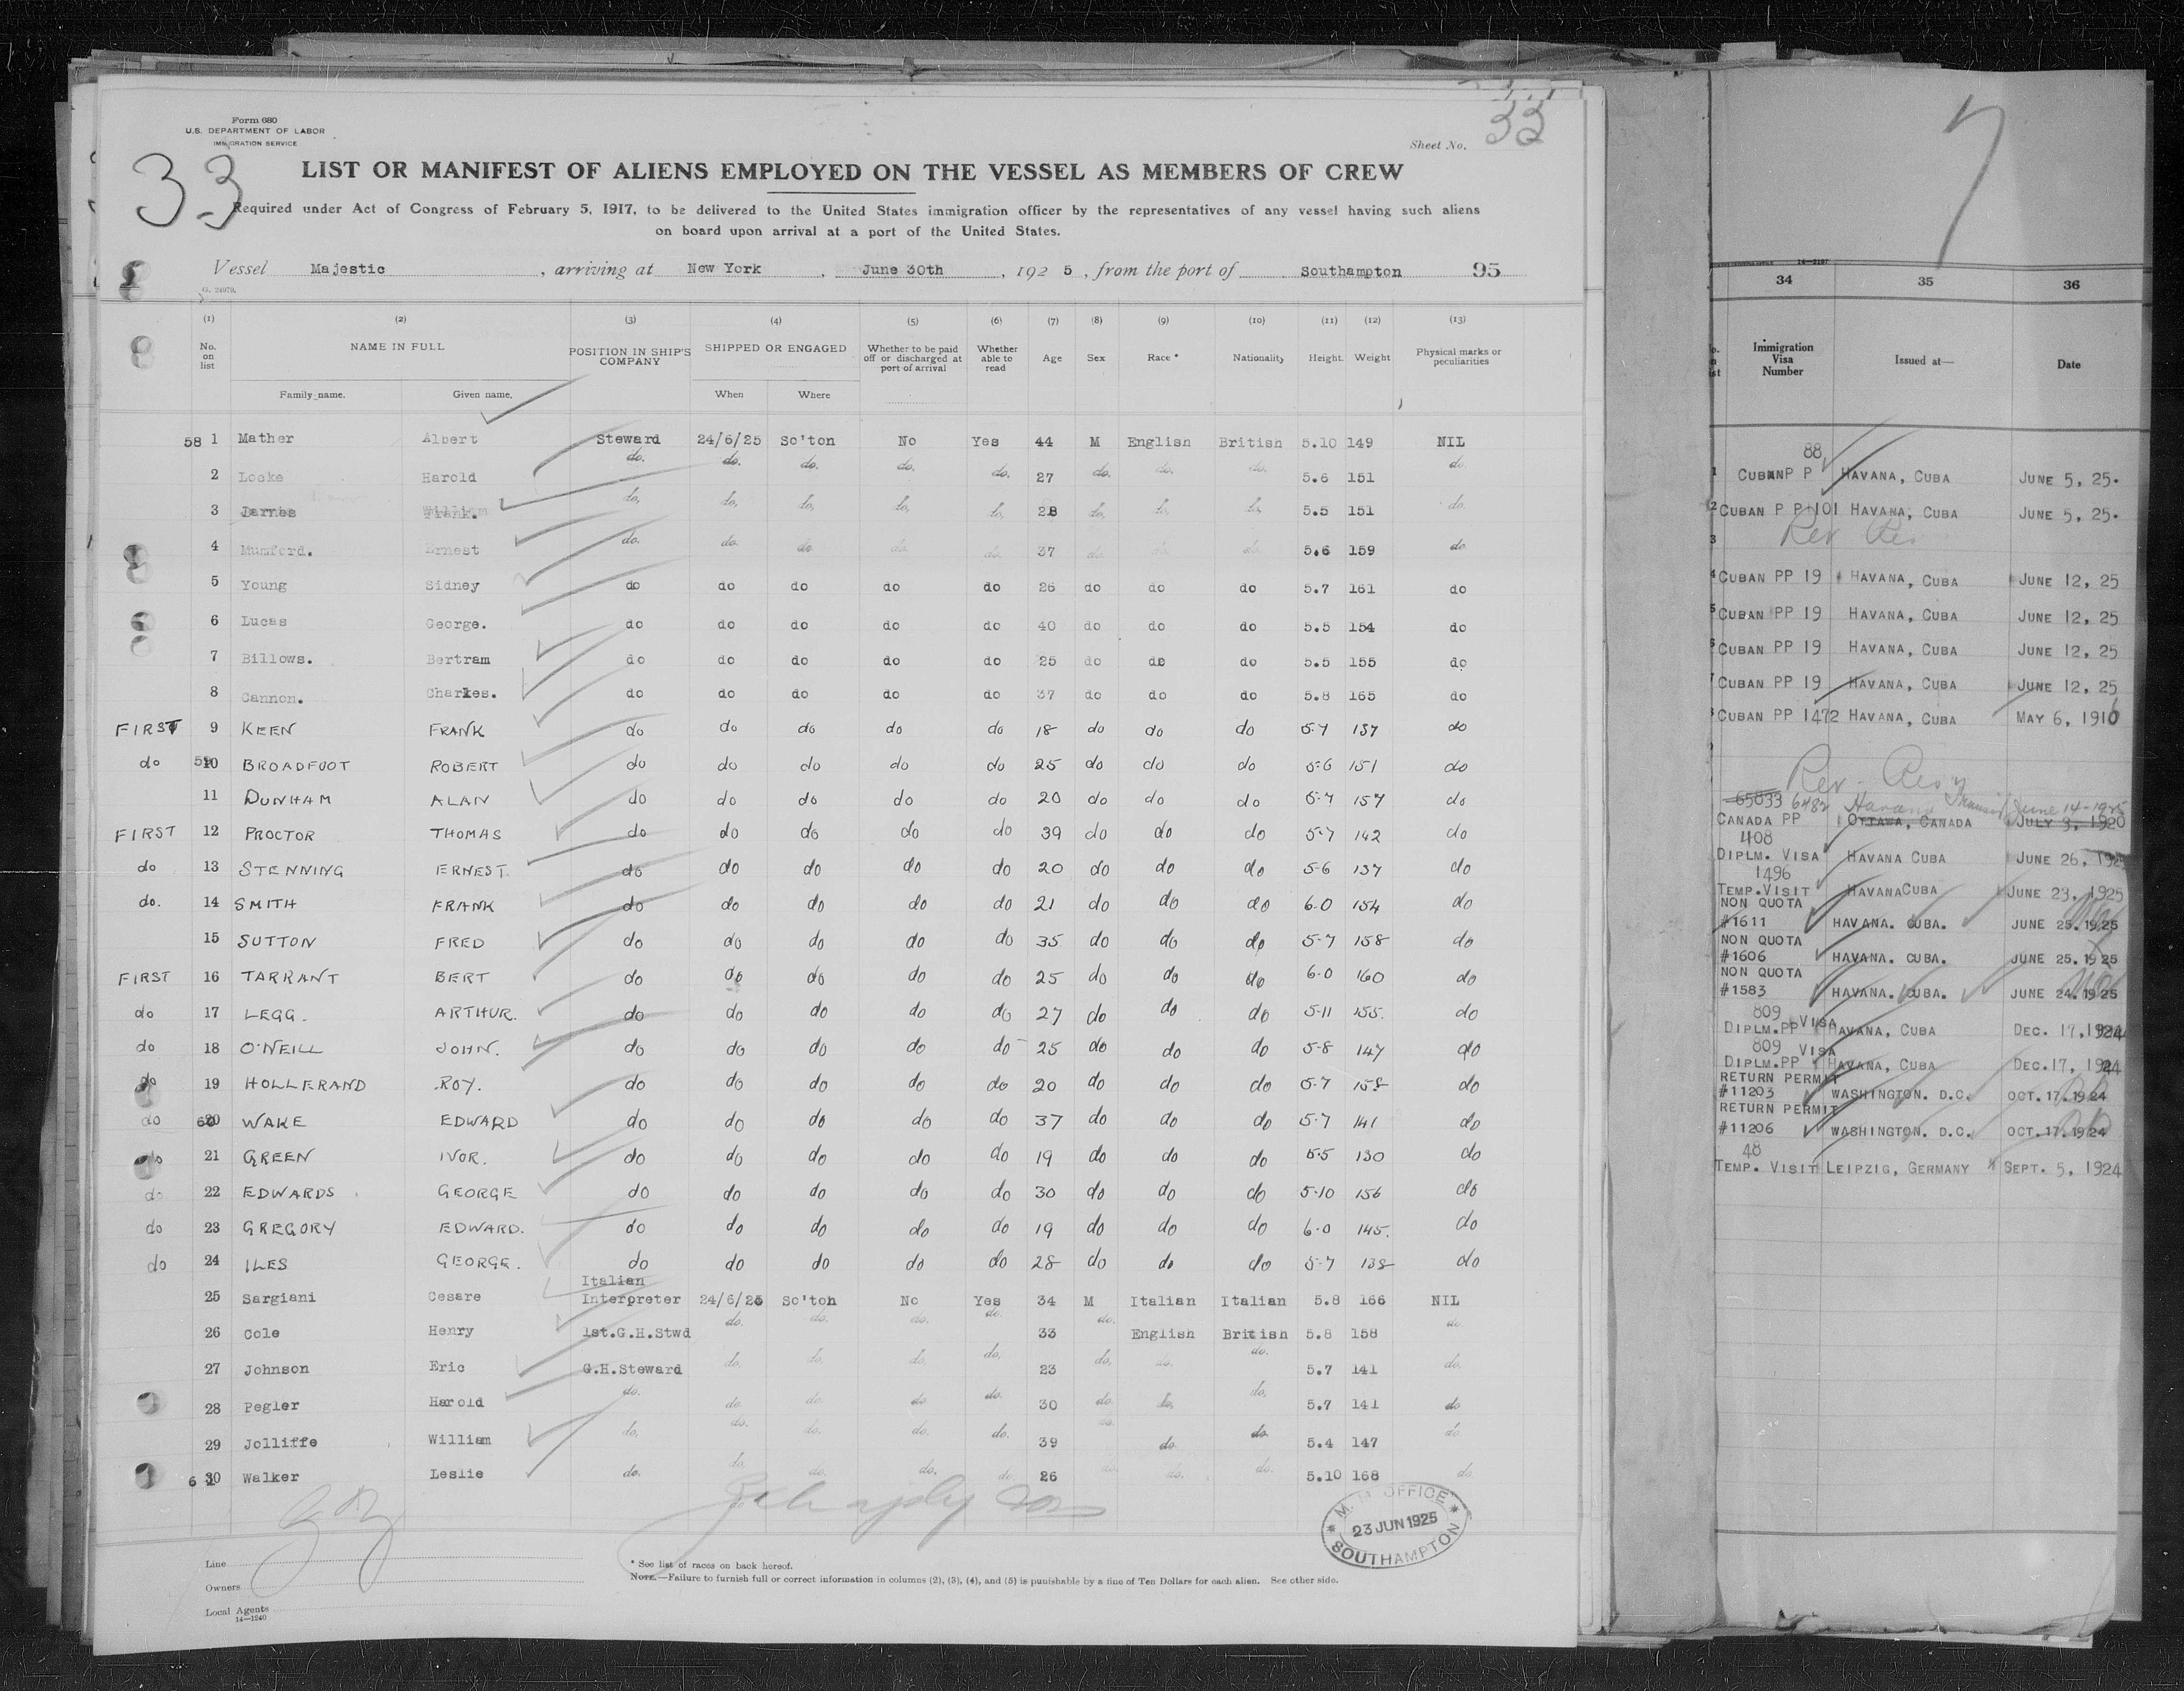 Form 680
U.S. DEPARTMENT OF LABOR
IMMIGRATION SERVICE
33
Sheet No. 33
LIST OR MANIFEST OF ALIENS EMPLOYED ON THE VESSEL AS MEMBERS OF CREW
Required under Act of Congress of February 5, 1917, to be delivered to the United States immigration officer by the representatives of any vessel having such aliens
on board upon arrival at a port of the United States.
Vessel Majestic, arriving at New York, June 30th, 1925, from the port of Southampton 95
(1) (2) (3) (4) (5) (6) (7) (8) (9) (10) (11) (12) (13)
No. on list NAME IN FULL POSITION IN SHIP'S COMPANY SHIPPED OR ENGAGED Whether to be paid off or discharged at port of arrival Whether able to read Age Sex Race * Nationality Height Weight Physical marks or peculiarities
Family name. Given name. When Where
58 1 Mather Albert Steward 24/6/25 So'ton No Yes 44 M English British 5.10 149 NIL
2 Locke Harold do. do. do. do. do. 27 do. do. do. 5.6 151 do.
3 Frank. do. do. do. do. do. 28 do. do. do. 5.5 151 do.
4 Mumford. Ernest do. do. do do. do. 37 do. do. do. 5.6 159 do
5 Young Sidney do do do do do 26 do do do 5.7 161 do
6 Lucas George. do do do do do 40 do do do 5.5 154 do
7 Billows. Bertram do do do do do 25 do do do 5.5 155 do
8 Cannon. Charles. do do do do do 37 do do do 5.8 165 do
FIRST 9 KEEN FRANK do do do do do 18 do do do 5-7 137 do
do 10 BROADFOOT ROBERT do do do do do 25 do do do 5-6 151 do
11 DUNHAM ALAN do do do do do 20 do do do 5-7 157 do
FIRST 12 PROCTOR THOMAS do do do do do 39 do do do 5-7 142 do
do 13 STENNING ERNEST. do do do do do 20 do do do 5-6 137 do
do. 14 SMITH FRANK do do do do do 21 do do do 6-0 154 do
15 SUTTON FRED do do do do do 35 do do do 5-7 158 do
FIRST 16 TARRANT BERT do do do do do 25 do do do 6-0 160 do
do 17 LEGG. ARTHUR. do do do do do 27 do do do 5-11 155. do
do 18 O'NEILL JOHN. do do do do do 25 do do do 5-8 147 do
do 19 HOLLERAND ROY. do do do do do 20 do do do 5-7 158 do
do 60 20 WAKE EDWARD do do do do do 37 do do do 5-7 141 do
do 21 GREEN IVOR. do do do do do 19 do do do 5-5 130 do
do 22 EDWARDS. GEORGE do do do do do 30 do do do 5-10 156 do
do 23 GREGORY EDWARD. do do do do do 19 do do do 6-0 145. do
do 24 ILES GEORGE. do do do do do 28 do do do 5-7 138 do
25 Sargiani Cesare Italian Interpreter 24/6/25 So'ton No Yes 34 M Italian Italian 5.8 166 NIL
26 Cole Henry 1st.G.H.Stwd do. do. do. do. 33 do. English British 5.8 158 do
27 Johnson Eric G.H.Steward do. do. do. do. 23 do. do. do. 5.7 141 do.
28 Pegler Harold do. do. do. do do. 30 do. do. do. 5.7 141 do
29 Jolliffe William do. do. do. do. do. 39 do. do. do 5.4 147 do.
61 30 Walker Leslie do. do. do. do. do. 26 do. do. do. 5.10 168 do.
M. M. OFFICE
23 JUN 1925
SOUTHAMPTON
Line
Owners
Local Agents
14—1240
* See list of races on back hereof.
NOTE.—Failure to furnish full or correct information in columns (2), (3), (4), and (5) is punishable by a fine of Ten Dollars for each alien. See other side.
7
34 35 36
Immigration Visa Number Issued at— Date
88
1 CUBAN P P HAVANA, CUBA JUNE 5, 25.
2 CUBAN P P 1101 HAVANA, CUBA JUNE 5, 25.
3 Rev Res
4 CUBAN PP 19 HAVANA, CUBA JUNE 12, 25
5 CUBAN PP 19 HAVANA, CUBA JUNE 12, 25
6 CUBAN PP 19 HAVANA, CUBA JUNE 12, 25
7 CUBAN PP 19 HAVANA, CUBA JUNE 12, 25
8 CUBAN PP 1472 HAVANA, CUBA MAY 6, 1916
Rev - Res
65833 6482 Havana Transit June 14-1925
CANADA PP OTTAWA, CANADA JULY 3, 1920
408
DIPLM. VISA HAVANA CUBA JUNE 26, 1925
1496
TEMP. VISIT HAVANA CUBA JUNE 23, 1925
NON QUOTA
#1611 HAVANA. CUBA. JUNE 25.1925
NON QUOTA
#1606 HAVANA. CUBA. JUNE 25.1925
NON QUOTA
#1583 HAVANA. CUBA. JUNE 24.1925
809
DIPLM.PP VISA HAVANA, CUBA DEC. 17, 1924
809
DIPLM.PP VISA HAVANA, CUBA DEC.17, 1924
RETURN PERMIT
#11203 WASHINGTON. D.C. OCT.17.1924
RETURN PERMIT
#11206 WASHINGTON. D.C. OCT.17.1924
48
TEMP. VISIT LEIPZIG, GERMANY SEPT. 5, 1924